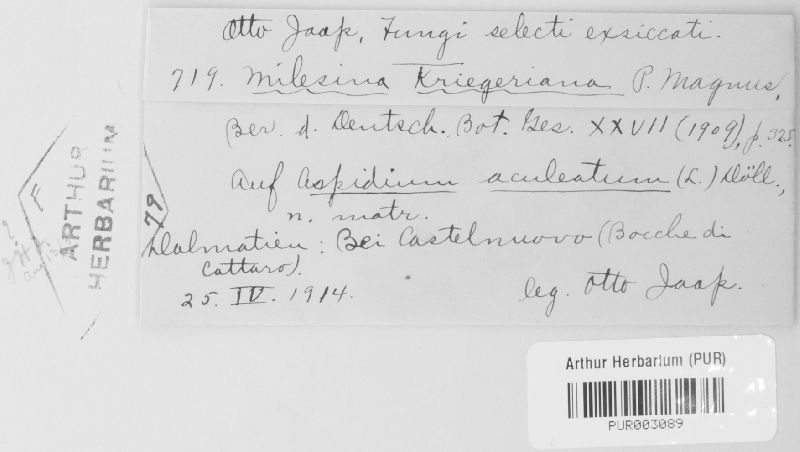 Otto Jaap, Fungi selecti exsiccati.
719. Milesina Kriegeriana P. Magnus,
Ber. d. Deutsch. Bot. Ges. XXVII (1909), p. 325.
Auf Aspidium aculeatum (L.) Döll.,
n. matr.
Dalmatien: Bei Castelnuovo (Bocche di
Cattaro).
25. IV. 1914.
leg. Otto Jaap.
F
ARTHUR
HERBARIUM
79
Arthur Herbarium (PUR)
PUR003089